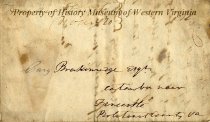 Property of History Museum of Western Virginia
Cary Breckinridge Esqr
near
Fincastle
Botetourt County Va